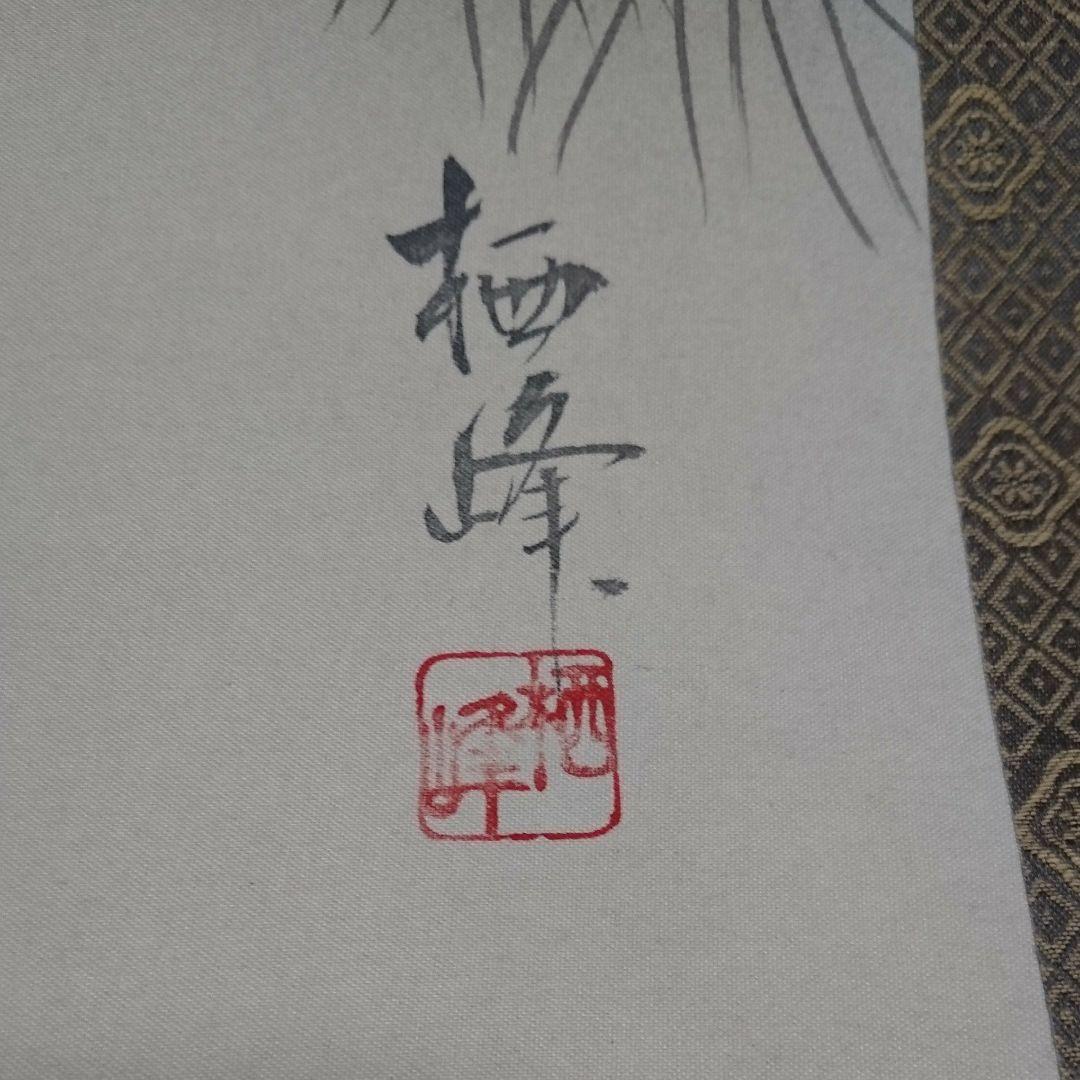 栖峰
栖峰